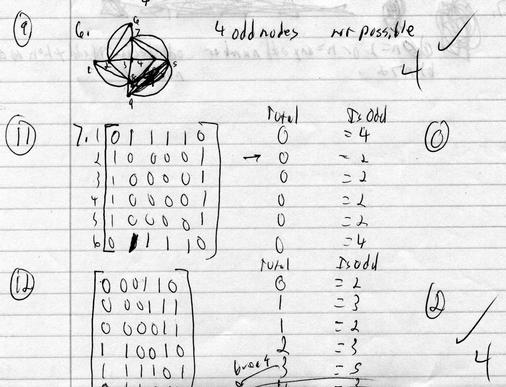 9 6. 4 odd nodes not possible
4
Total Is Odd
11 7. 1 0 1 1 1 1 0 0 = 4 0
2 1 0 0 0 0 1 → 0 = 2
3 1 0 0 0 0 1 0 = 2
4 1 0 0 0 0 1 0 = 2
5 1 0 0 0 0 1 0 = 2
6 0 1 1 1 1 0 0 = 4
Total Is Odd
12 0 0 0 1 1 0 0 = 2
0 0 0 1 1 1 1 = 3 2
0 0 0 0 1 1 1 = 2
1 1 0 0 1 0 2 = 3
1 1 1 1 0 1 3 = 5
4